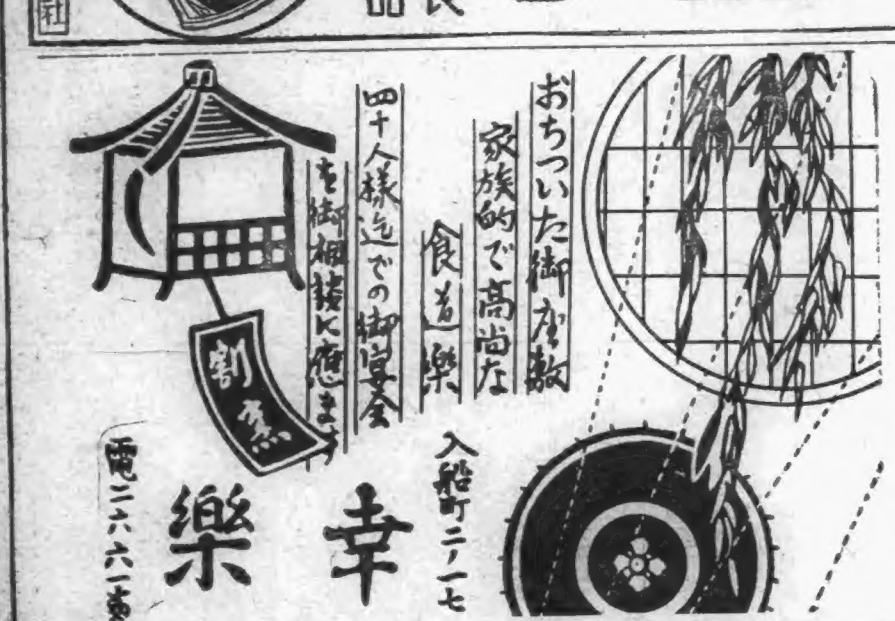 社
おちついた御座敷
家族的で高尚な
食道樂
四十人樣迄での御宴会
を御相談に應ます
割烹
入船町二ノ一七
幸樂
電二六六一番